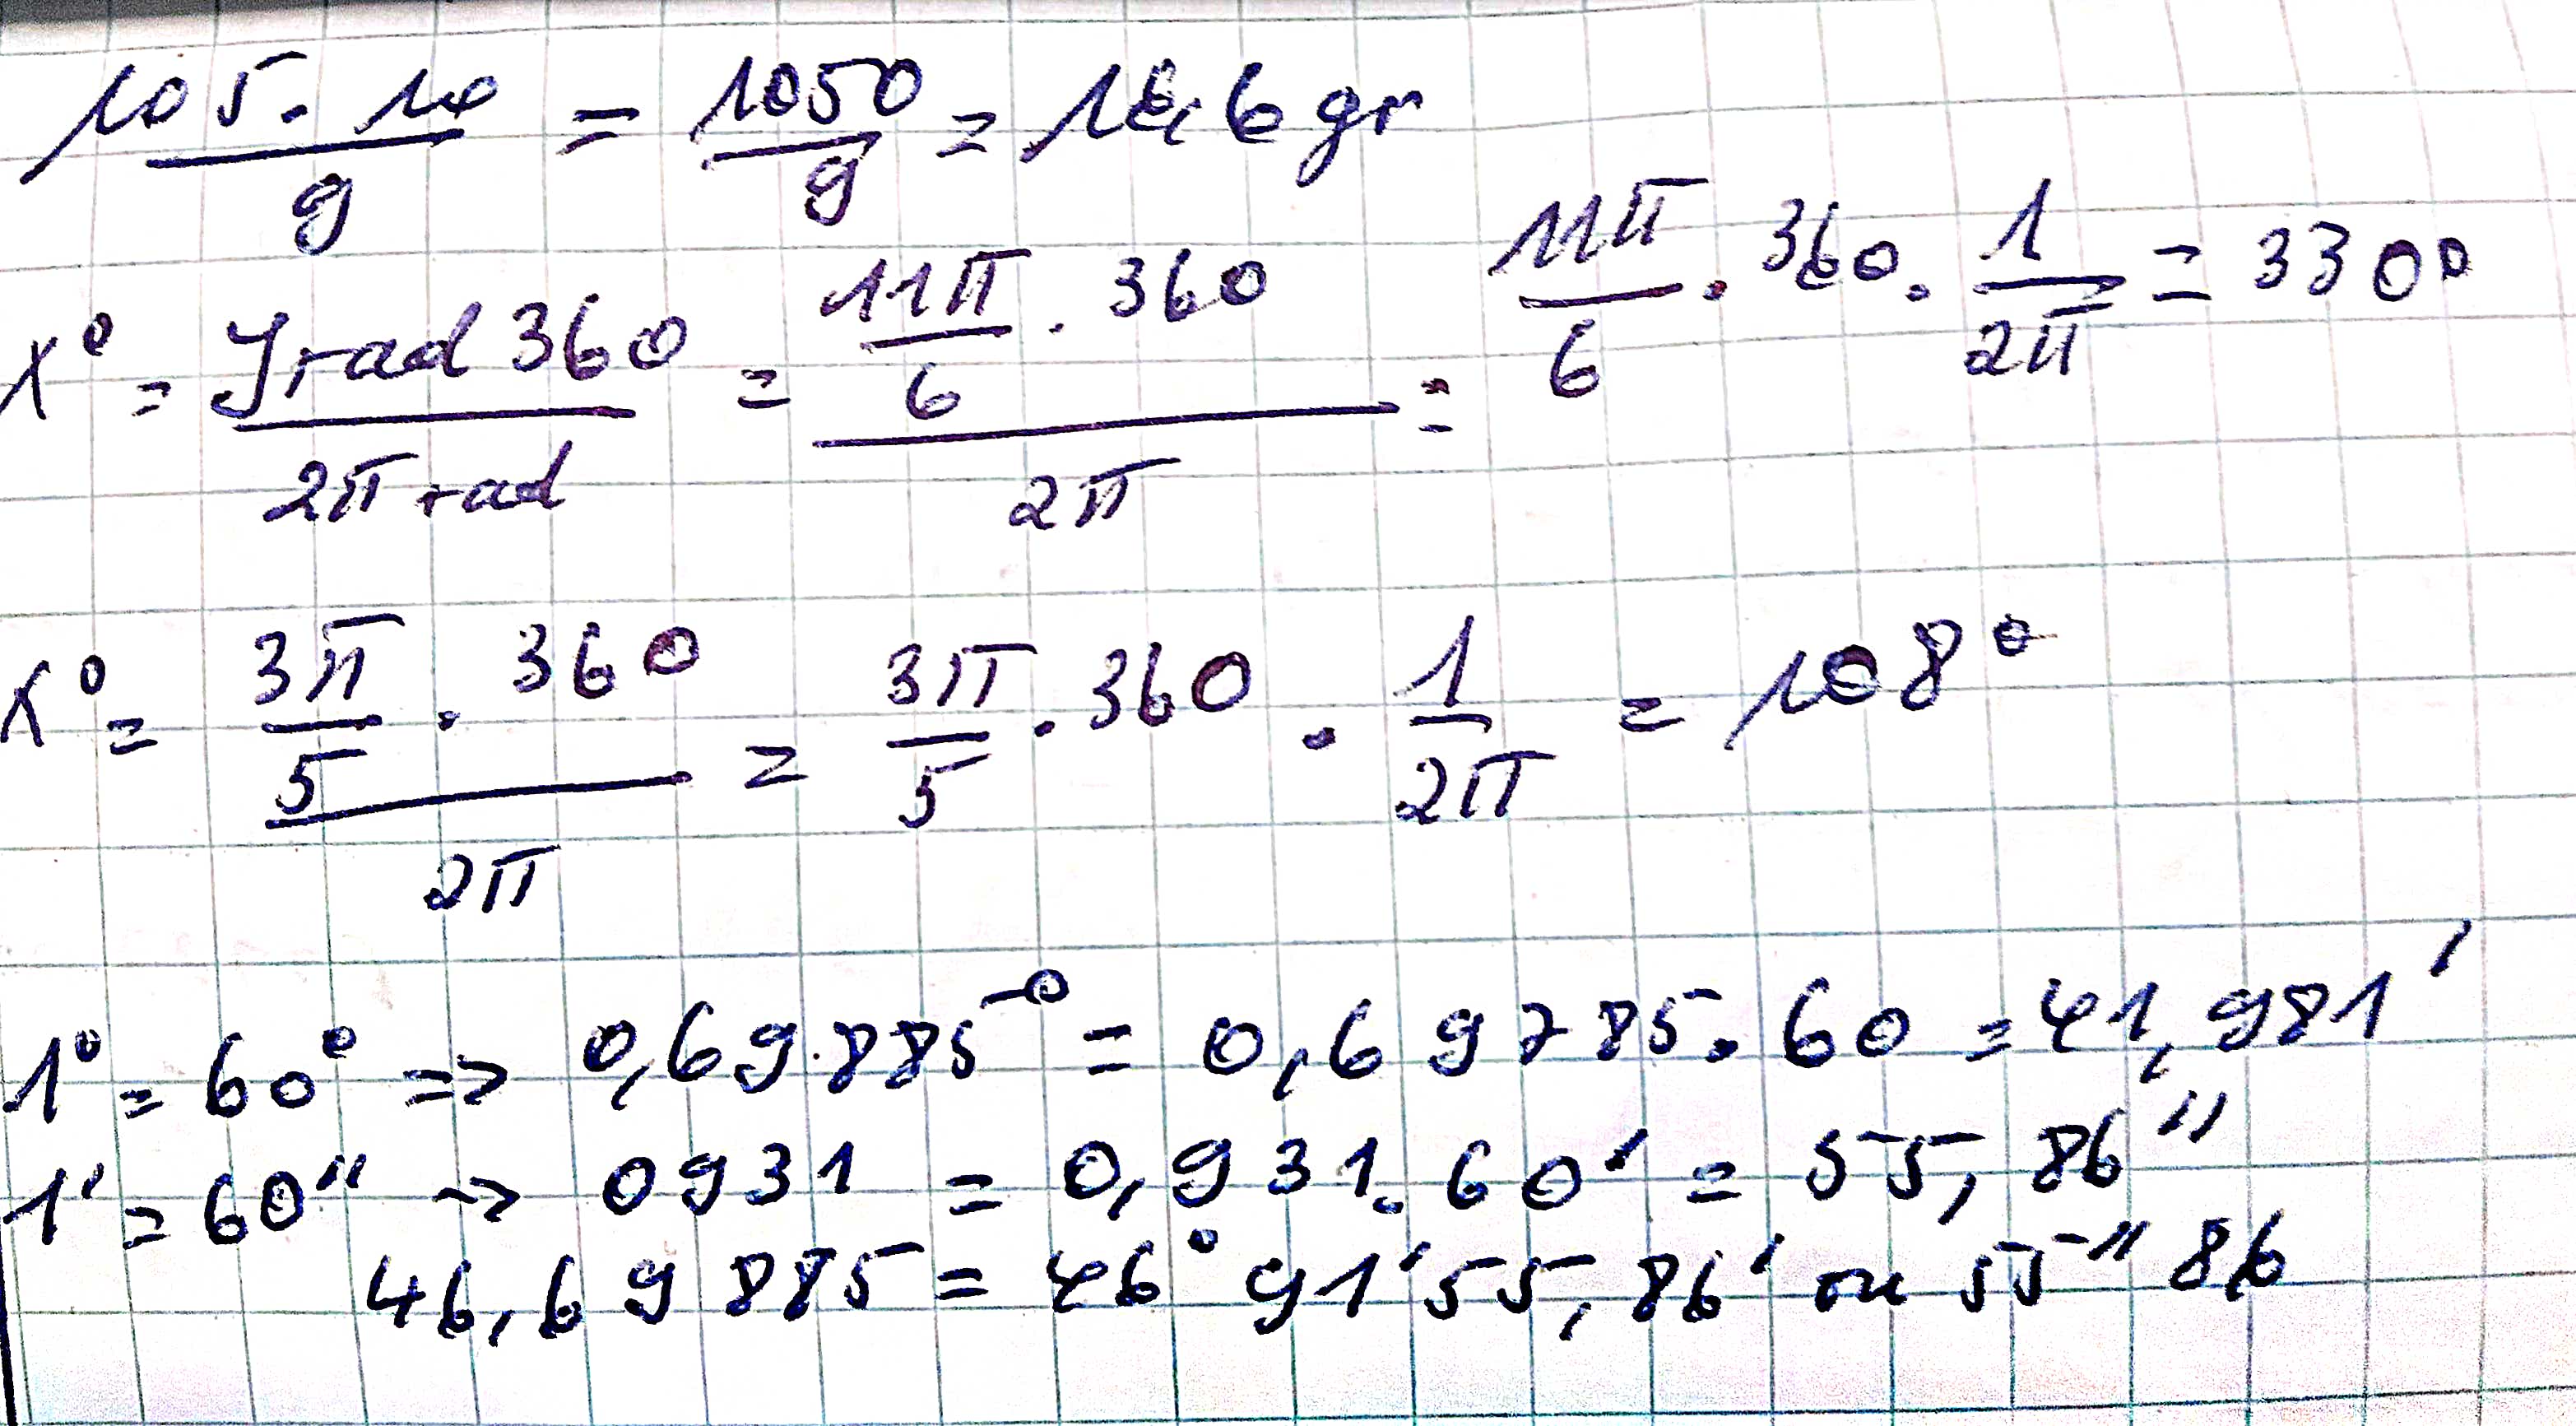 105 · 10 / 9 = 1050 / 9 = 16,6 gr
x° = y rad 360 / 2π rad = 11π/6 · 360 / 2π = 11π/6 · 360 · 1/2π = 330°
x° = 3π/5 · 360 / 2π = 3π/5 · 360 · 1/2π = 108°
1° = 60° => 0,69885° = 0,69785 · 60 = 41,981'
1' = 60" -> 0931 = 0,931 · 60' = 55,86"
46,69885 = 46° 91' 55,86' ou 55" 86